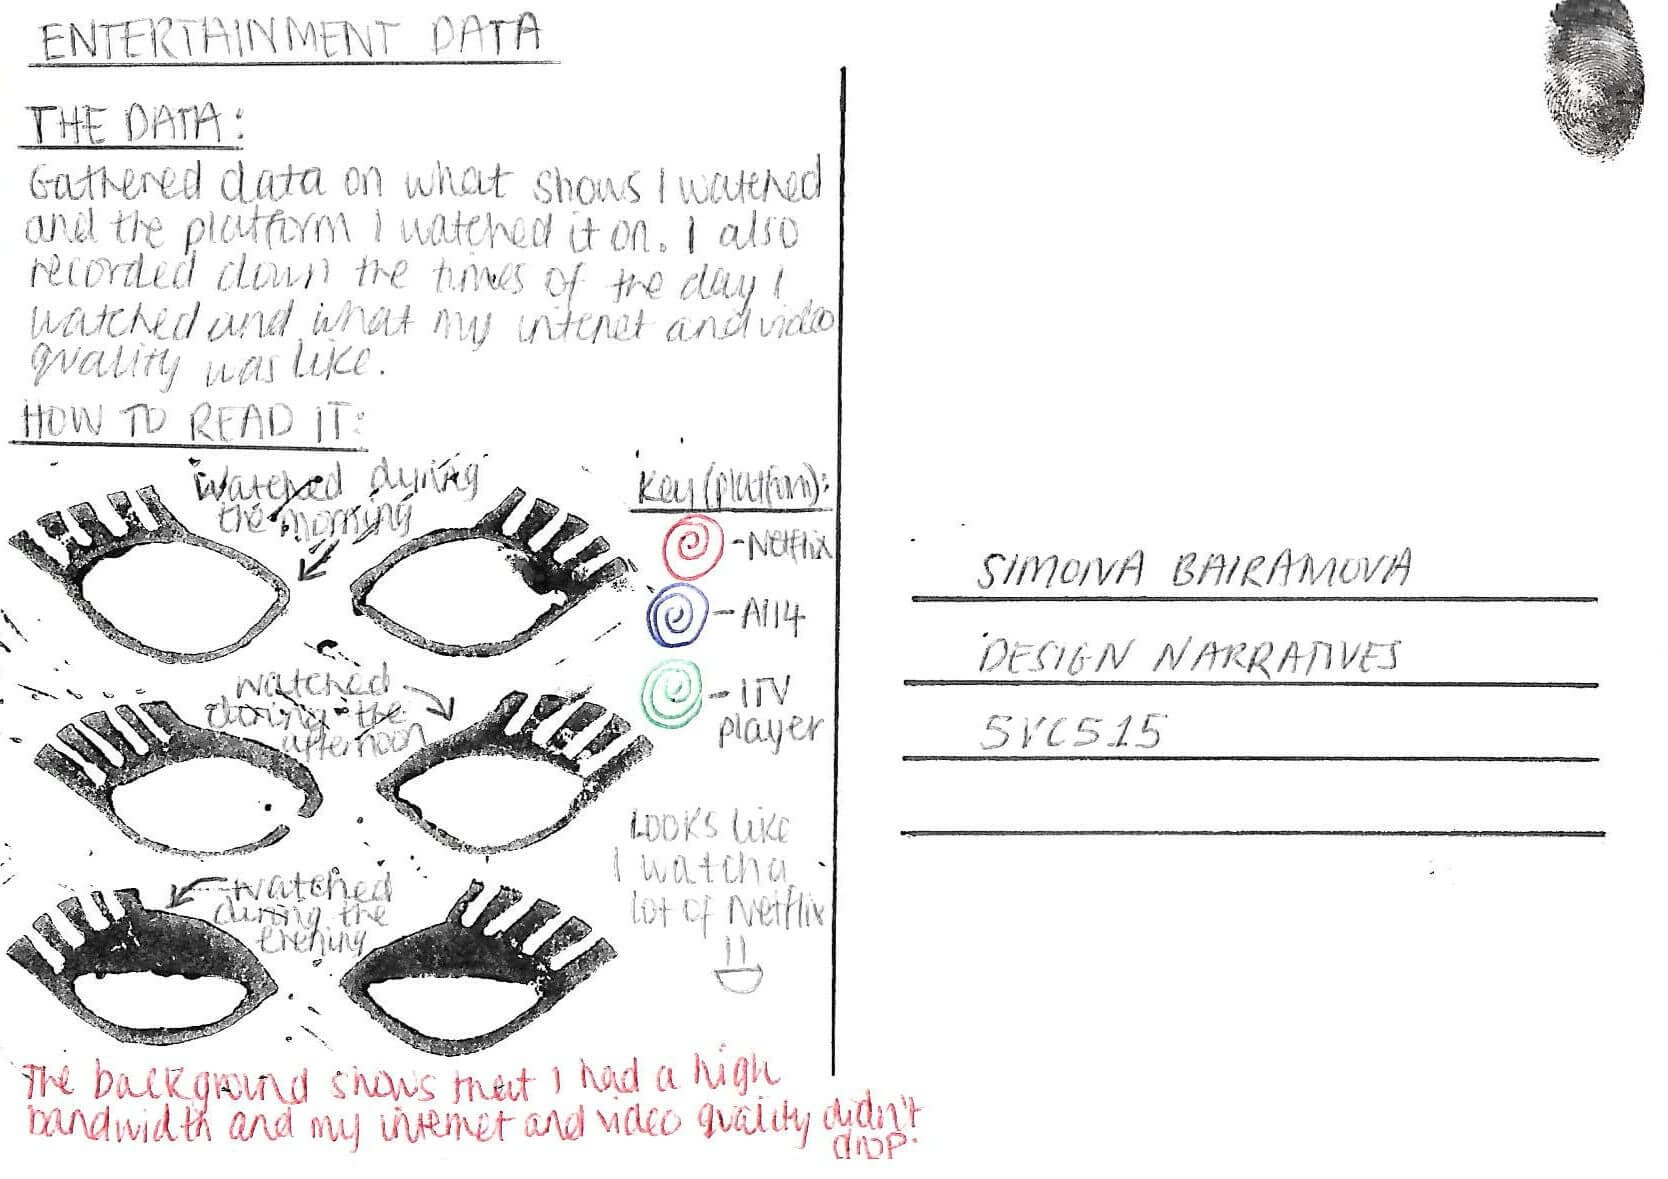 ENTERTAINMENT DATA
THE DATA:
Gathered data on what shows I watched
and the platform I watched it on. I also
recorded down the times of the day I
watched and what my internet and video
quality was like.
HOW TO READ IT:
Watched during
the morning
watched
during the
afternoon
watched
during the
evening
Key (platform):
-Netflix
-All4
-ITV
player
LOOKS like
I watch a
lot of Netflix
The background shows that I had a high
bandwidth and my internet and video quality didn't
drop.
SIMONA BAIRAMOVA
DESIGN NARRATIVES
5VC515